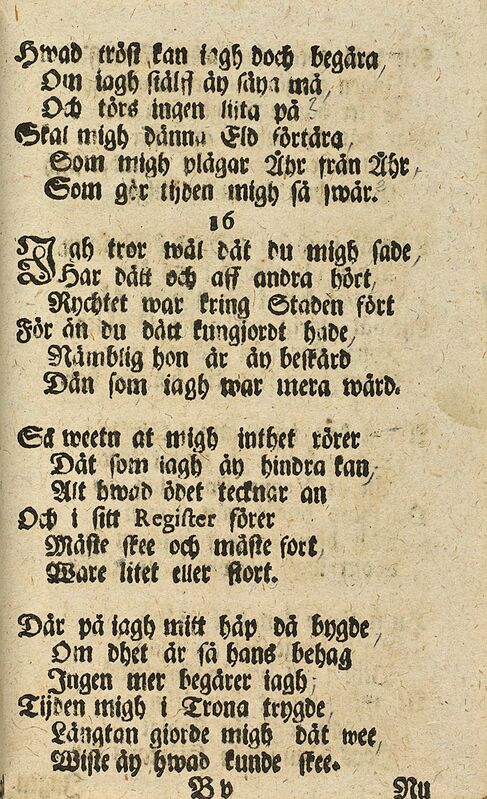 Hwad tröst kan iagh doch begära,
Om iagh siälff äy säya må,
Och törs ingen lijta på?
Skal migh dänna Eld förtära,
Som migh plågar Åhr från Åhr,
Som gör tijden migh så swår.
16
Jagh tror wäl dät du migh sade,
Har dätt och aff andra hört,
Rychtet war kring Staden fört
För än du dätt kungjordt hade,
Nämblig hon är äy beskärd
Dän som iagh war mera wärd.
Så weetn at migh inthet rörer
Dät som iagh äy hindra kan,
Alt hwad ödet tecknar an
Och i sitt Register förer
Måste skee och måste fort,
Ware litet eller stort.
Där på iagh mitt håp då bygde,
Om dhet är så hans behag
Ingen mer begärer iagh;
Tijden migh i Trona trygde,
Långtan giorde migh dät wee,
Wiste äy hwad kunde skee.
B v Nu